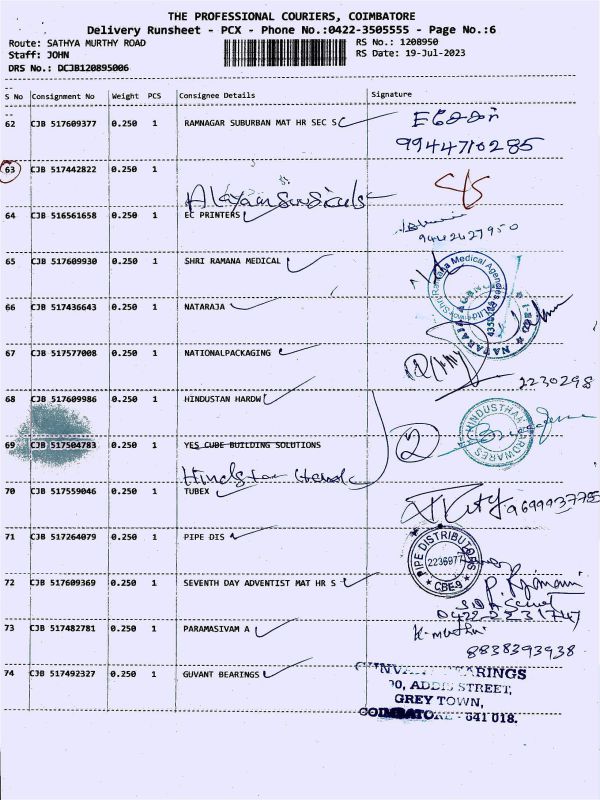 THE PROFESSIONAL COURIERS, COIMBATORE
Delivery Runsheet - PCX - Phone No.:0422-3505555 - Page No.:6
Route: SATHYA MURTHY ROAD RS No.: 1208950
Staff: JOHN RS Date: 19-Jul-2023
DRS No.: DCJB120895006
S No Consignment No Weight PCS Consignee Details Signature
62 CJB 517609377 0.250 1 RAMNAGAR SUBURBAN MAT HR SEC S
9944710285
63 CJB 517442822 0.250 1
64 CJB 516561658 0.250 1 EC PRINTERS
9442427950
65 CJB 517609930 0.250 1 SHRI RAMANA MEDICAL
66 CJB 517436643 0.250 1 NATARAJA
67 CJB 517577008 0.250 1 NATIONALPACKAGING
2230298
68 CJB 517609986 0.250 1 HINDUSTAN HARDW
HINDUSTHAN HARDWARES
69 CJB 517504783 0.250 1 YES CUBE BUILDING SOLUTIONS
2
70 CJB 517559046 0.250 1 TUBEX
71 CJB 517264079 0.250 1 PIPE DIS
PIPE DISTRIBUTORS
2236977
CBE-9
72 CJB 517609369 0.250 1 SEVENTH DAY ADVENTIST MAT HR S
0422-2231747
73 CJB 517482781 0.250 1 PARAMASIVAM A
8838393938
74 CJB 517492327 0.250 1 GUVANT BEARINGS
STREET,
GREY TOWN,
COIMBATORE - 641 018.